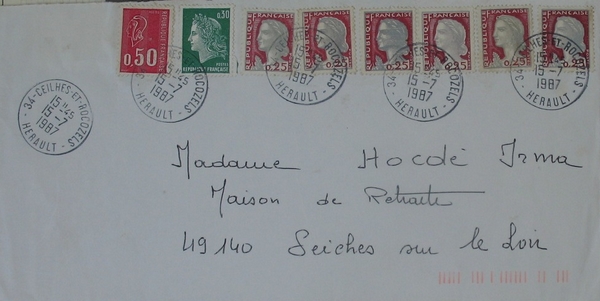 0,50 0,30 0,25 0,25 0,25 0,25 0,25 0,25
POSTES
REPUBLIQUE FRANÇAISE
REPUBLIQUE FRANÇAISE
REPUBLIQUE FRANÇAISE
REPUBLIQUE FRANÇAISE
REPUBLIQUE FRANÇAISE
REPUBLIQUE FRANÇAISE
REPUBLIQUE FRANÇAISE
34-CEILHES-ET-ROCOZELS
15H45
15-7
1987
- HERAULT -
34-CEILHES-ET-ROCOZELS
15H45
15-7
1987
HERAULT -
34-CEILHES-ET-ROCOZELS
15H45
15-7
1987
HERAULT -
34-CEILHES-ET-ROCOZELS
15H45
15-7
1987
HERAULT -
34-CEILHES-ET-ROCOZELS
15H45
15-7
1987
HERAULT -
Madame Hocdé Irma
Maison de Retraite
49140 Seiches sur le Loir